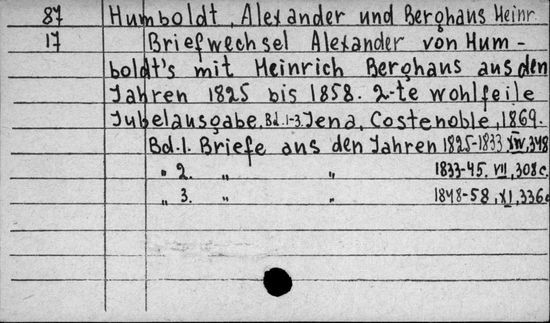 87 Humboldt, Alexander und Berghaus Heinr
17 Briefwechsel Alexander von Hum-
boldt's mit Heinrich Berghaus aus den
Jahren 1825 bis 1858. 2-te wohlfeile
Jubelausgabe. Bd. 1-3. Jena, Costenoble, 1869.
Bd. 1. Briefe aus den Jahren 1825-1833 XIV, 348
„ 2. „ „ 1833-45. VII, 308 c.
„ 3. „ „ 1848-58, XI, 336 c